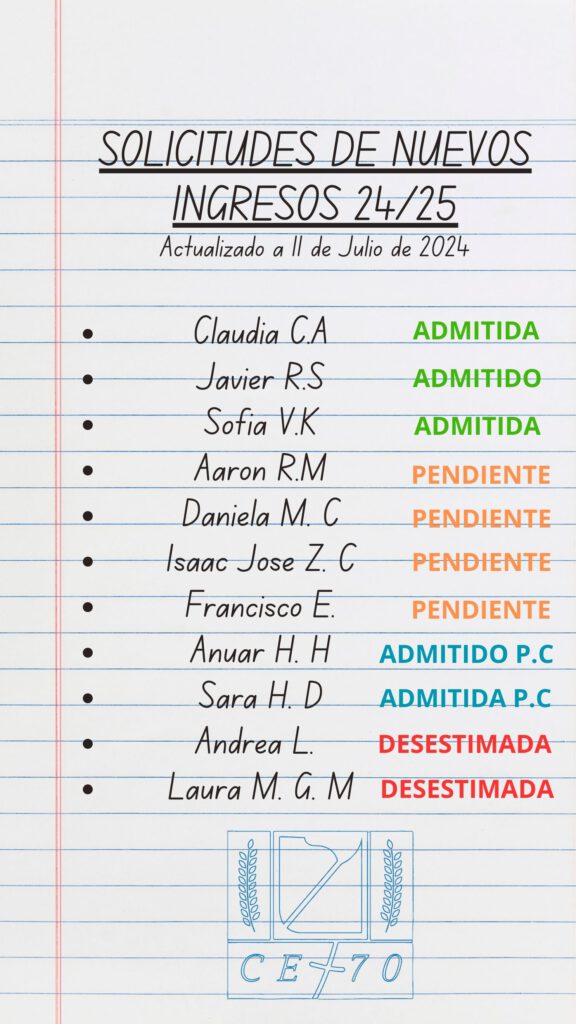 SOLICITUDES DE NUEVOS
INGRESOS 24/25
Actualizado a 11 de Julio de 2024
Claudia C.A ADMITIDA
Javier R.S ADMITIDO
Sofia V.K ADMITIDA
Aaron R.M PENDIENTE
Daniela M. C PENDIENTE
Isaac Jose Z. C PENDIENTE
Francisco E. PENDIENTE
Anuar H. H ADMITIDO P.C
Sara H. D ADMITIDA P.C
Andrea L. DESESTIMADA
Laura M. G. M DESESTIMADA
CE 70